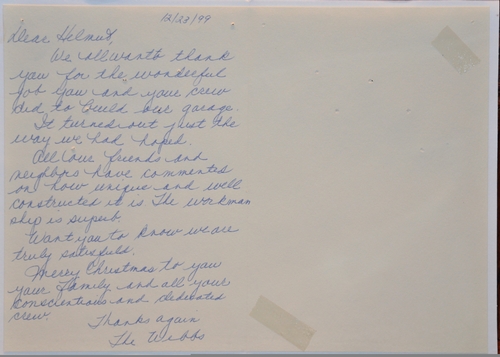 12/23/99
Dear Helmut,
We all want to thank
you for the wonderful
job you and your crew
did to build our garage.
It turned out just the
way we had hoped.
All our friends and
neighbors have commented
on how unique and well
constructed it is The workman
ship is superb.
Want you to know we are
truly satisfied.
Merry Christmas to you
your family and all your
conscientious and dedicated
crew.
Thanks again
The Webbs